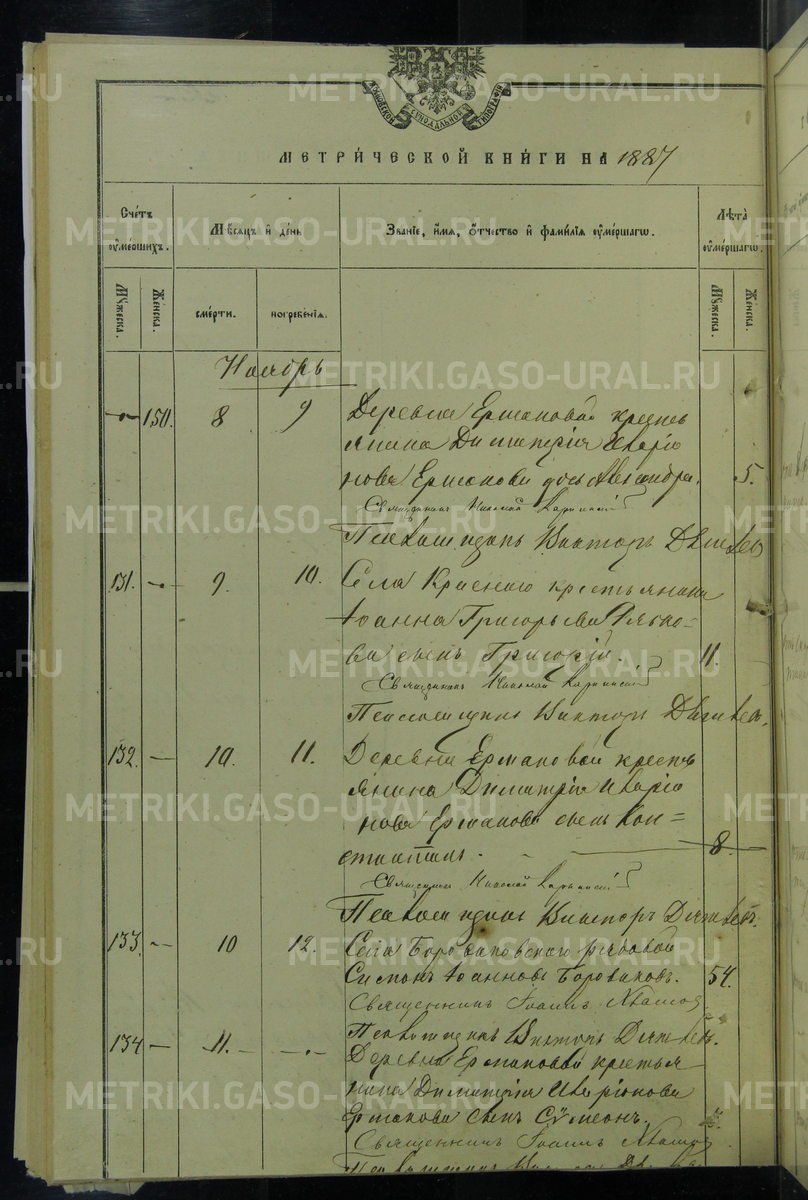 КОВСКОЙ СѴНОДАЛЬНОЙ ТИПОГРАФІИ
МЕТРИ́ЧЕСКОЙ КНИ́ГИ НА 1887
Сче́тъ ᲂу҆ме́ршихъ.
Мѣ́сяцъ и҆ де́нь
Зва́нїе, и҆́мѧ, ѻ҆́тчество и҆ фами́лїѧ ᲂу҆ме́ршагѡ.
Лѣ́та ᲂу҆ме́ршагѡ.
Мꙋ́жеска.
Же́нска.
сме́рти.
погребе́нїѧ.
Мꙋ́жеска.
Же́нска.
Ноябрь
150. 8 9 Деревни Ермаковой кресть
янина Димитрія Иларіо
нова Ермакова дочь Александра. 5.
Священникъ Николай
Псаломщикъ Викторъ
131. 9. 10. Села Краснаго крестьянина
Іоанна Григорьева
ва сынъ Григорій. 11.
Священникъ Николай
Псаломщикъ Викторъ
132. 10. 11. Деревни Ермаковой кресть
янина Димитрія Иларіо
нова Ермакова сынъ Кон=
стантинъ. 8.
Священникъ Николай
Псаломщикъ Викторъ
133. 10 12. Села Боровиковскаго рядовой
Симонъ Іоанновъ Боровиковъ. 54.
Священникъ Іоаннъ
Псаломщикъ Викторъ
134 11. Деревни Ермаковой крестья
нина Димитрія Иларіонова
Ермакова сынъ Сѵмеонъ.
Священникъ Іоаннъ
METRIKI.GASO-URAL.RU